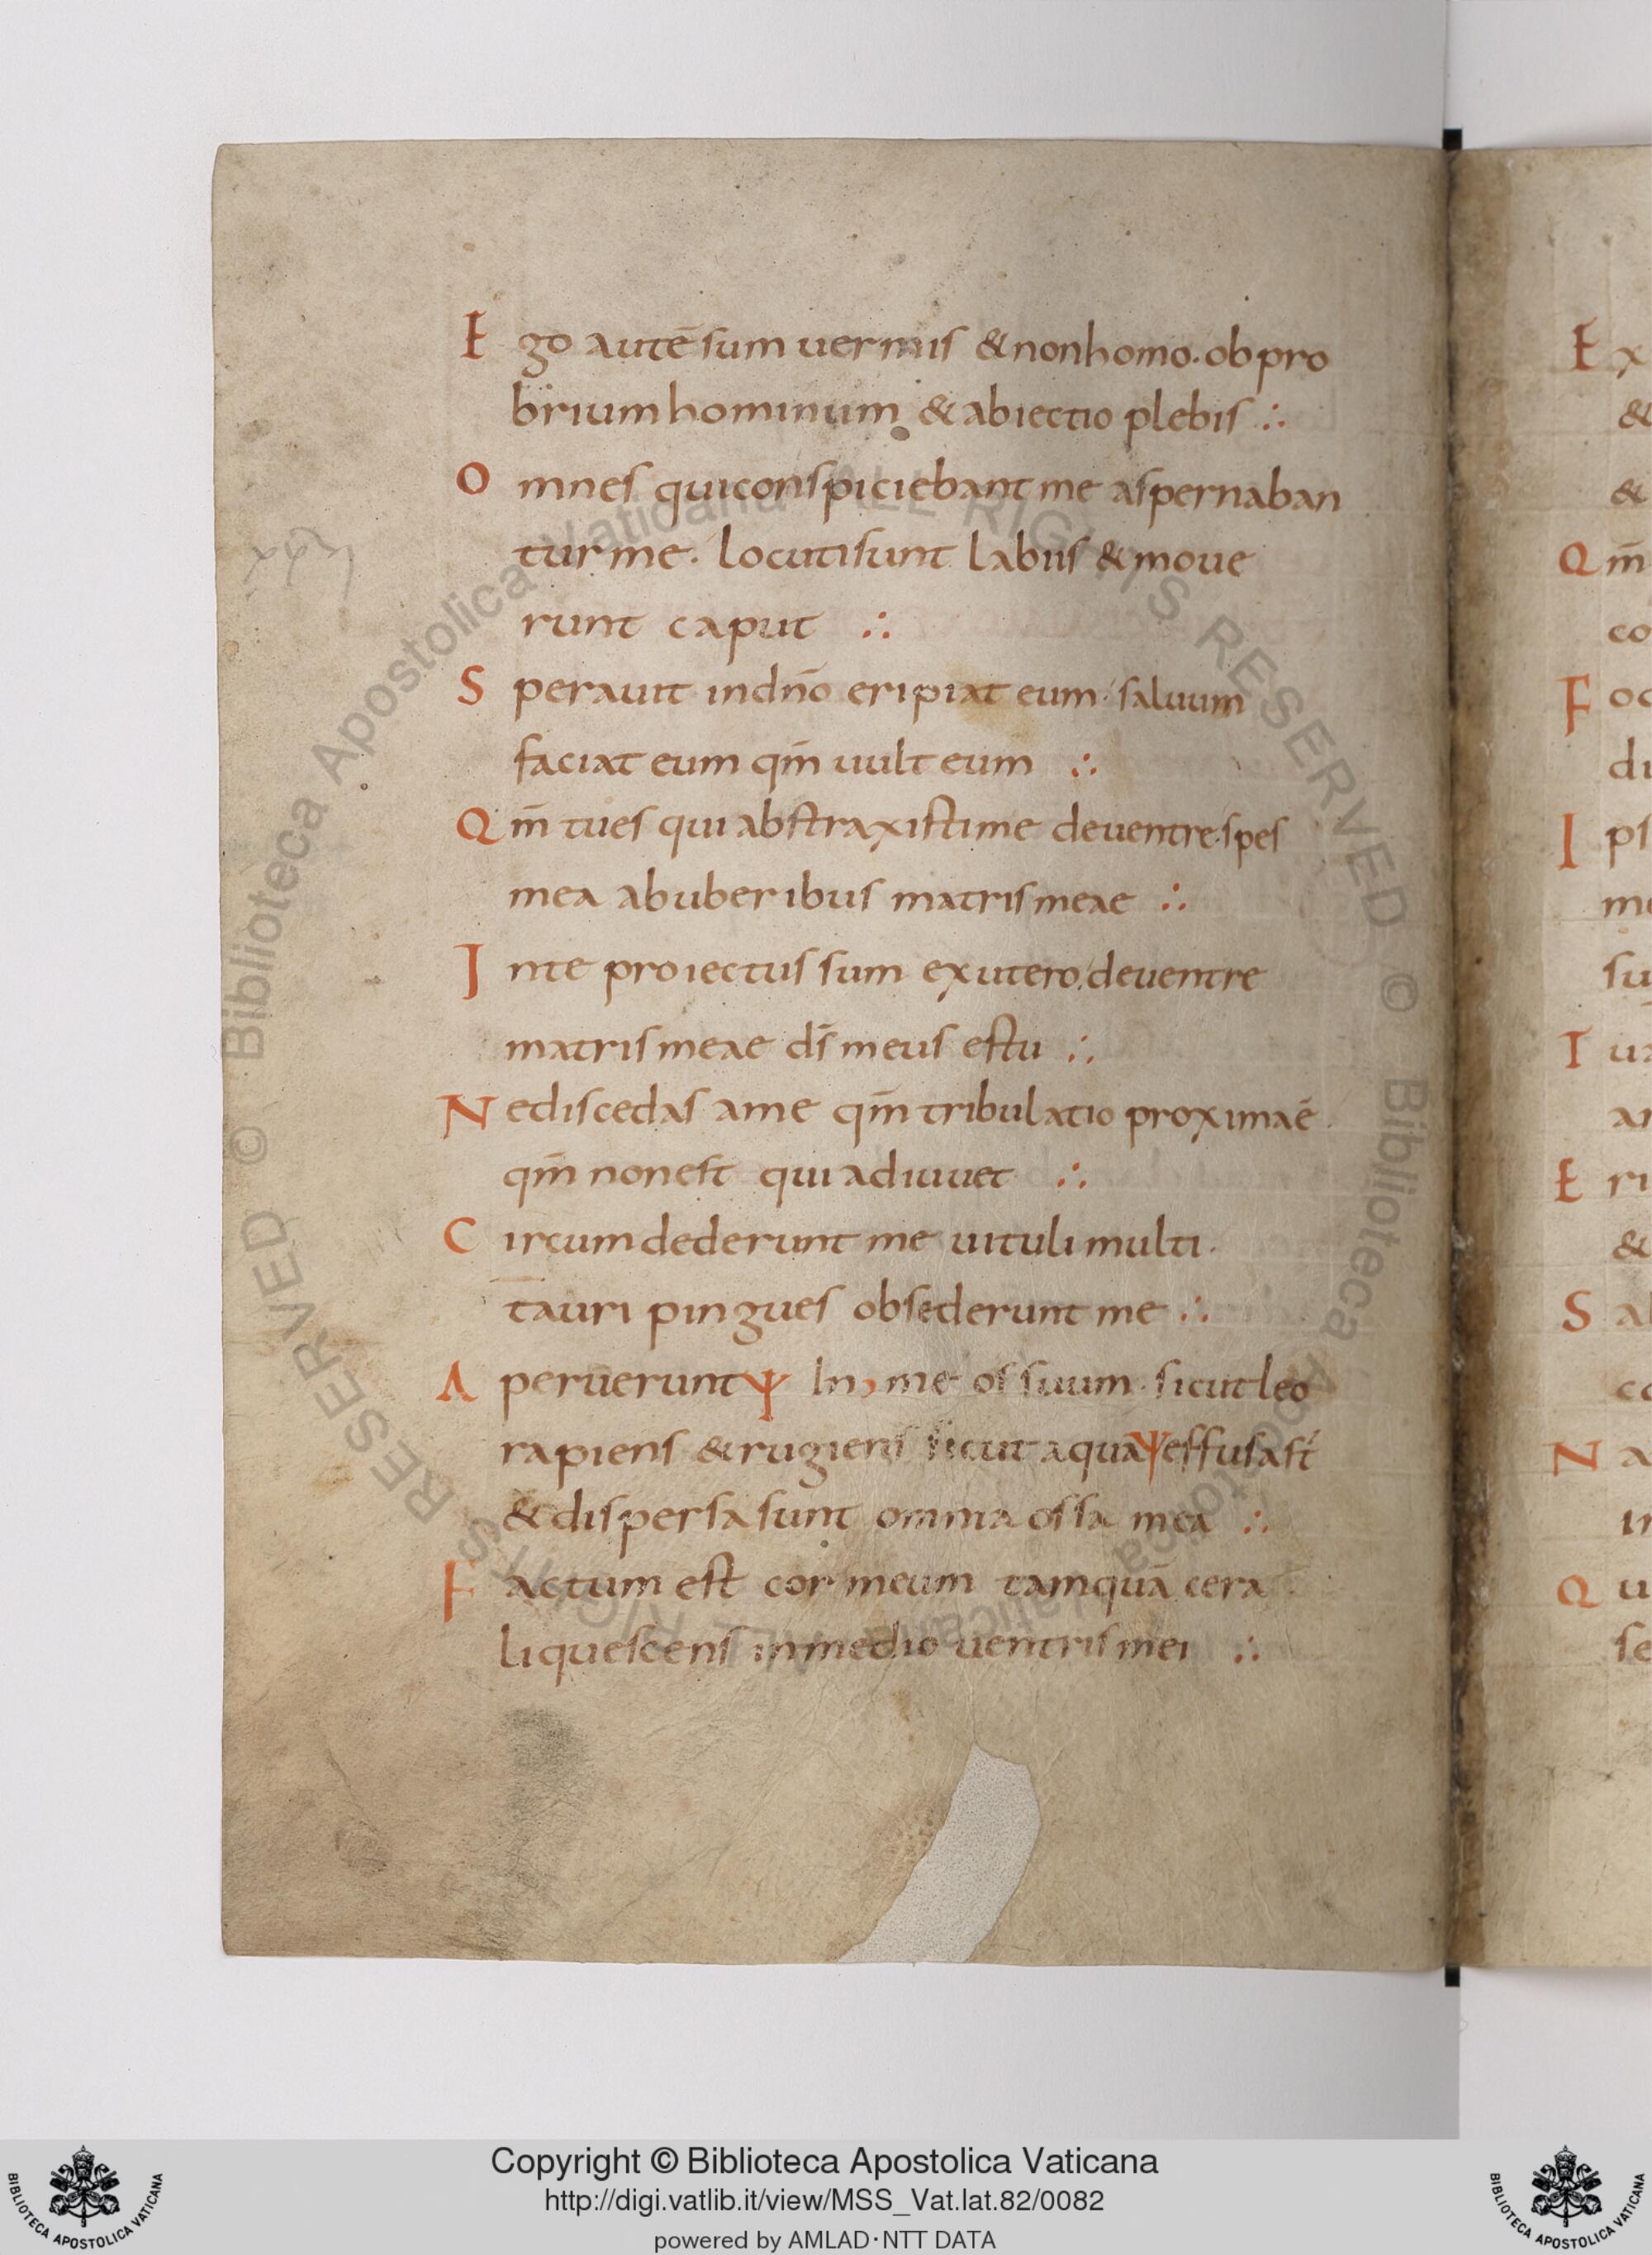 Ego autē sum uermis & non homo. obpro
brium hominum & abiectio plebis ∴
Omnes qui conspiciebant me aspernaban
tur me. locuti sunt labiis & moue
runt caput ∴
Sperauit in dn̄o eripiat eum. saluum
faciat eum qm̄ uult eum ∴
Qm̄ tu es qui abstraxisti me de uentre. spes
mea ab uberibus matris meae ∴
In te proiectus sum ex utero. de uentre
matris meae ds̄ meus es tu ∴
Ne discedas a me qm̄ tribulatio proxima ē.
qm̄ non est qui adiuuet ∴
Circumdederunt me uituli multi.
tauri pingues obsederunt me ∴
Aperuerunt ψ In me os suum. sicut leo
rapiens & rugiens sicut aqua ψ effusa st̄
& dispersa sunt omnia ossa mea ∴
Factum est cor meum tamquā cera
liquescens in medio uentris mei ∴
Ex
&
&
Qm̄
co
Foc
di
Ips
me
su
Tu
ar
Eri
&
Sal
co
Na
in
Qu
se
© Biblioteca Apostolica Vaticana ALL RIGHTS RESERVED © Biblioteca Apostolica Vaticana ALL RIGHTS RESERVED
Copyright © Biblioteca Apostolica Vaticana
http://digi.vatlib.it/view/MSS_Vat.lat.82/0082
powered by AMLAD·NTT DATA
BIBLIOTECA APOSTOLICA VATICANA
BIBLIOTECA APOSTOLICA VATICANA